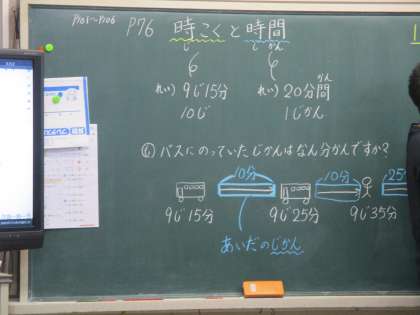 P76 時こくと時間
じ じかん
れい) 9じ15分 れい) 20分間
かん
10じ 1じかん
バスにのっていたじかんはなん分かんですか?
10分 10分 25
9じ15分 9じ25分 9じ35分
あいだのじかん